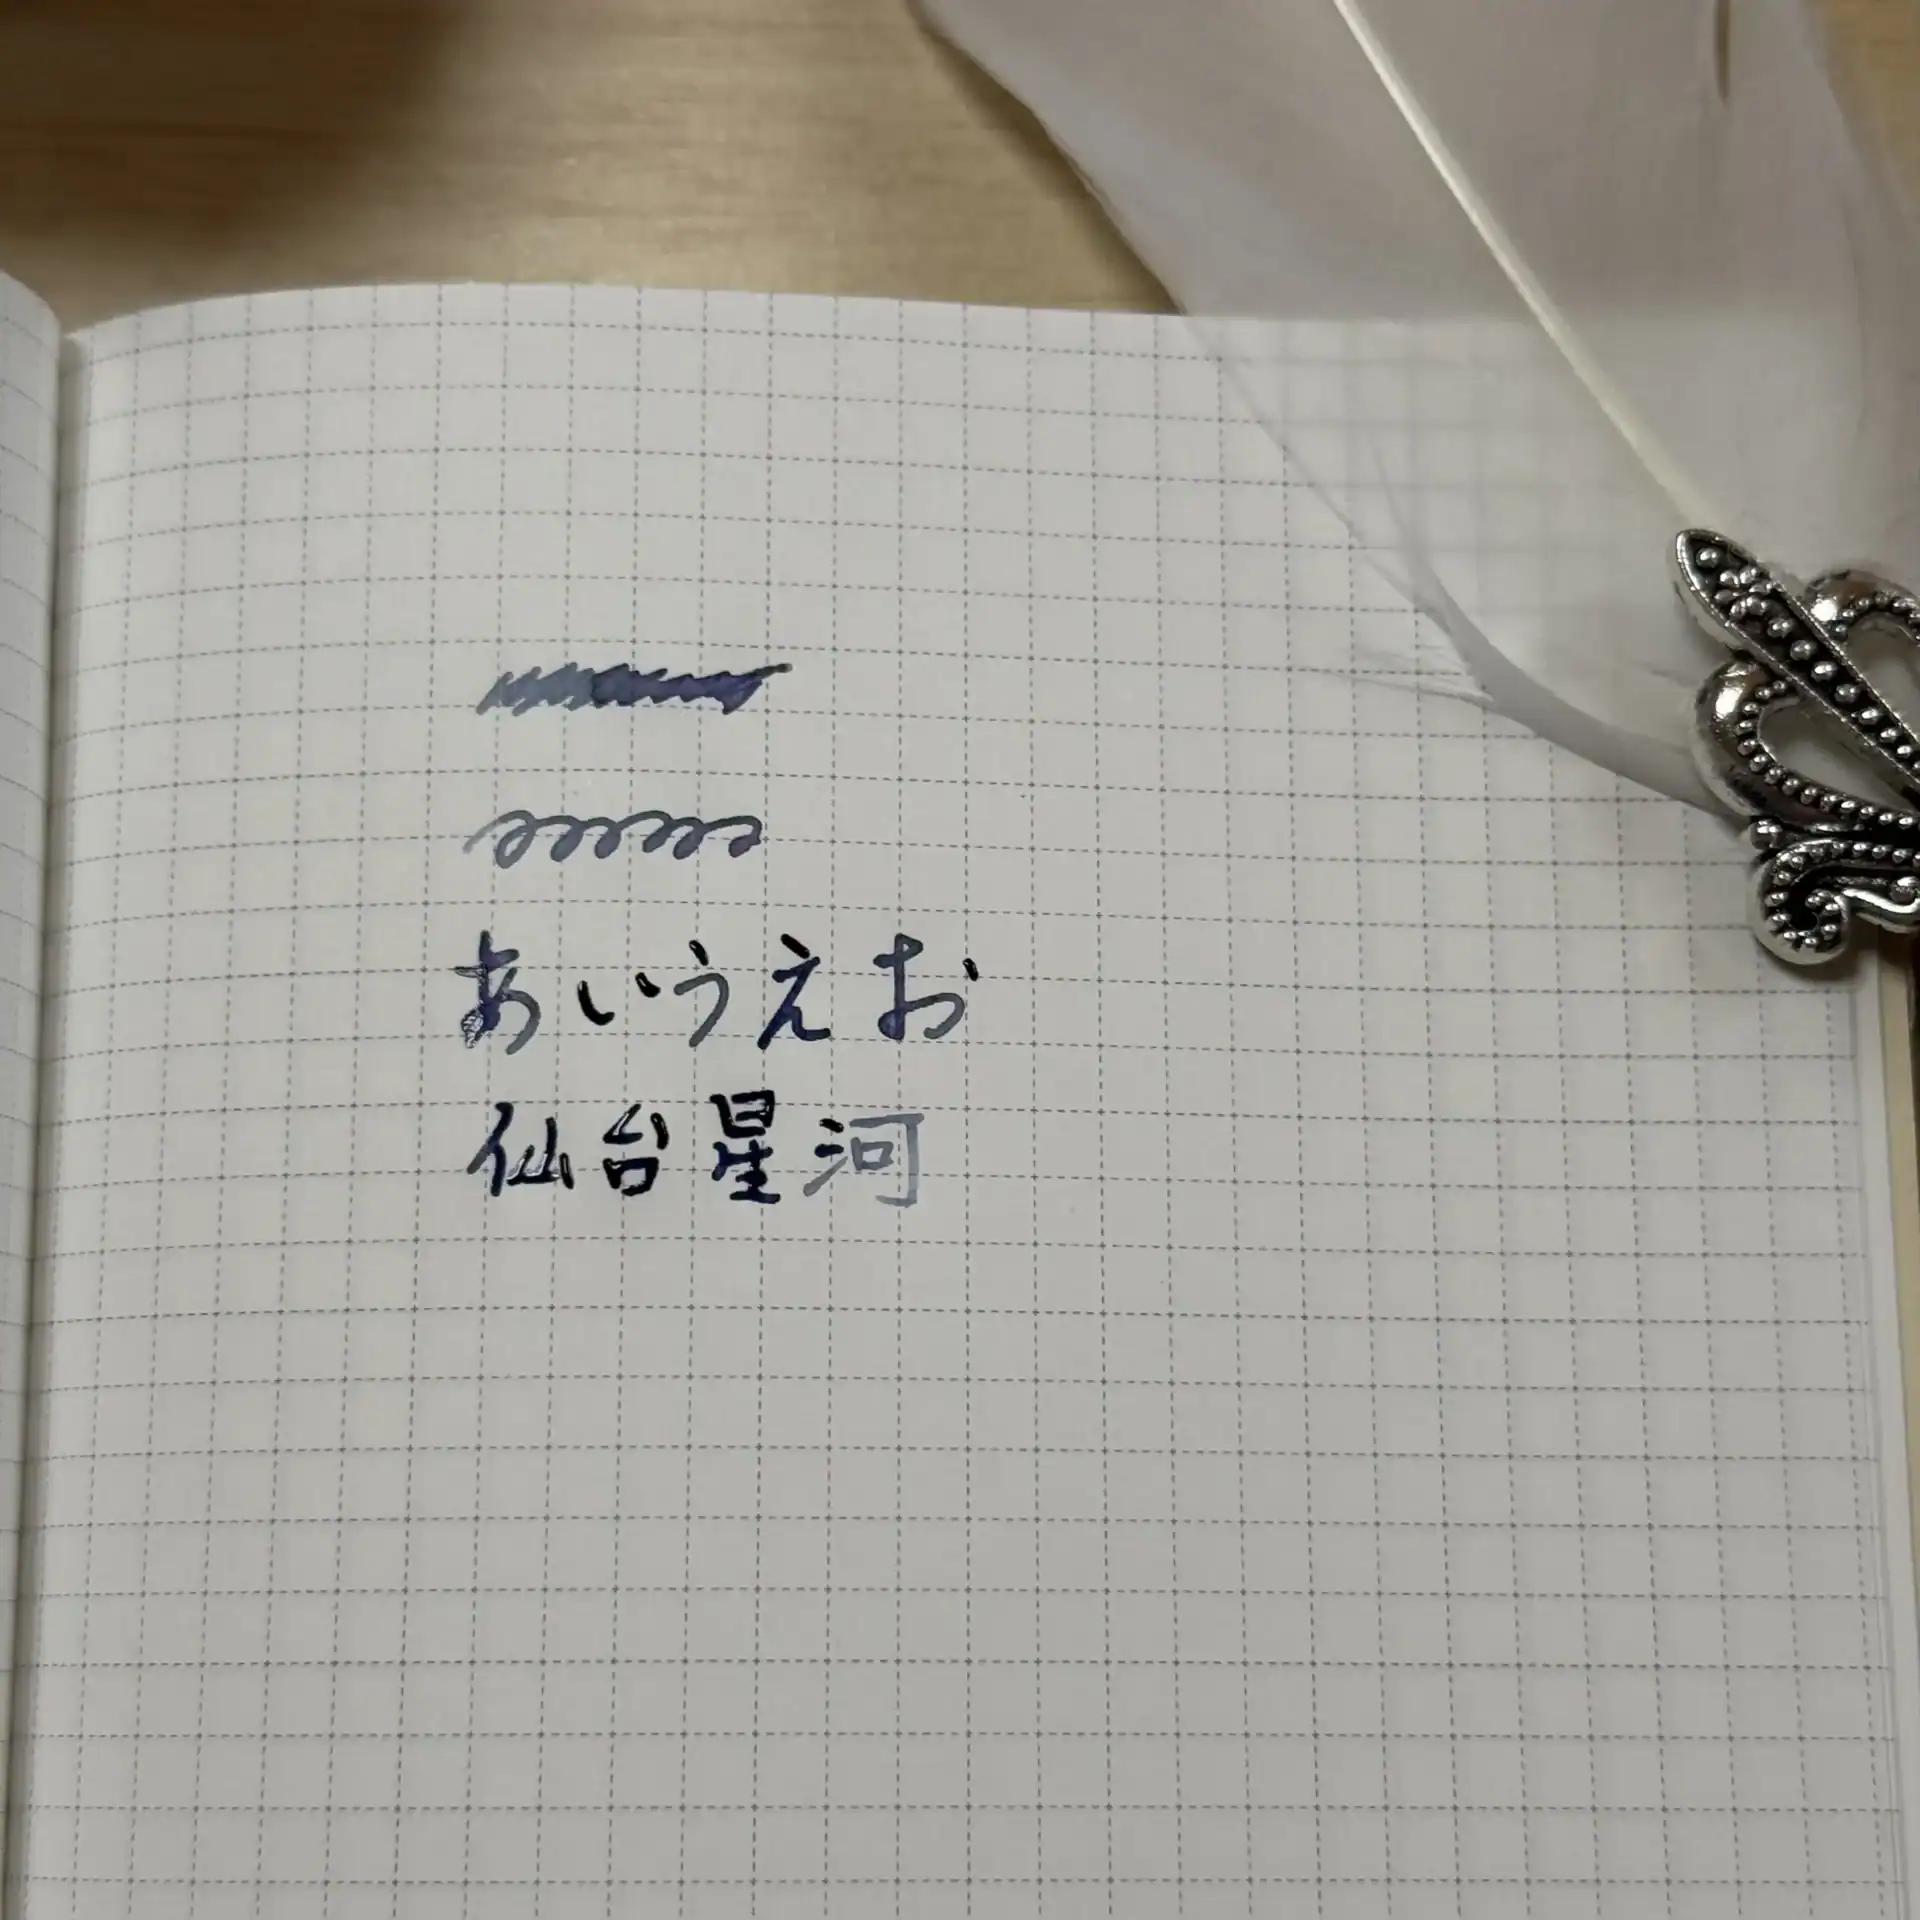 あいうえお
仙台星河